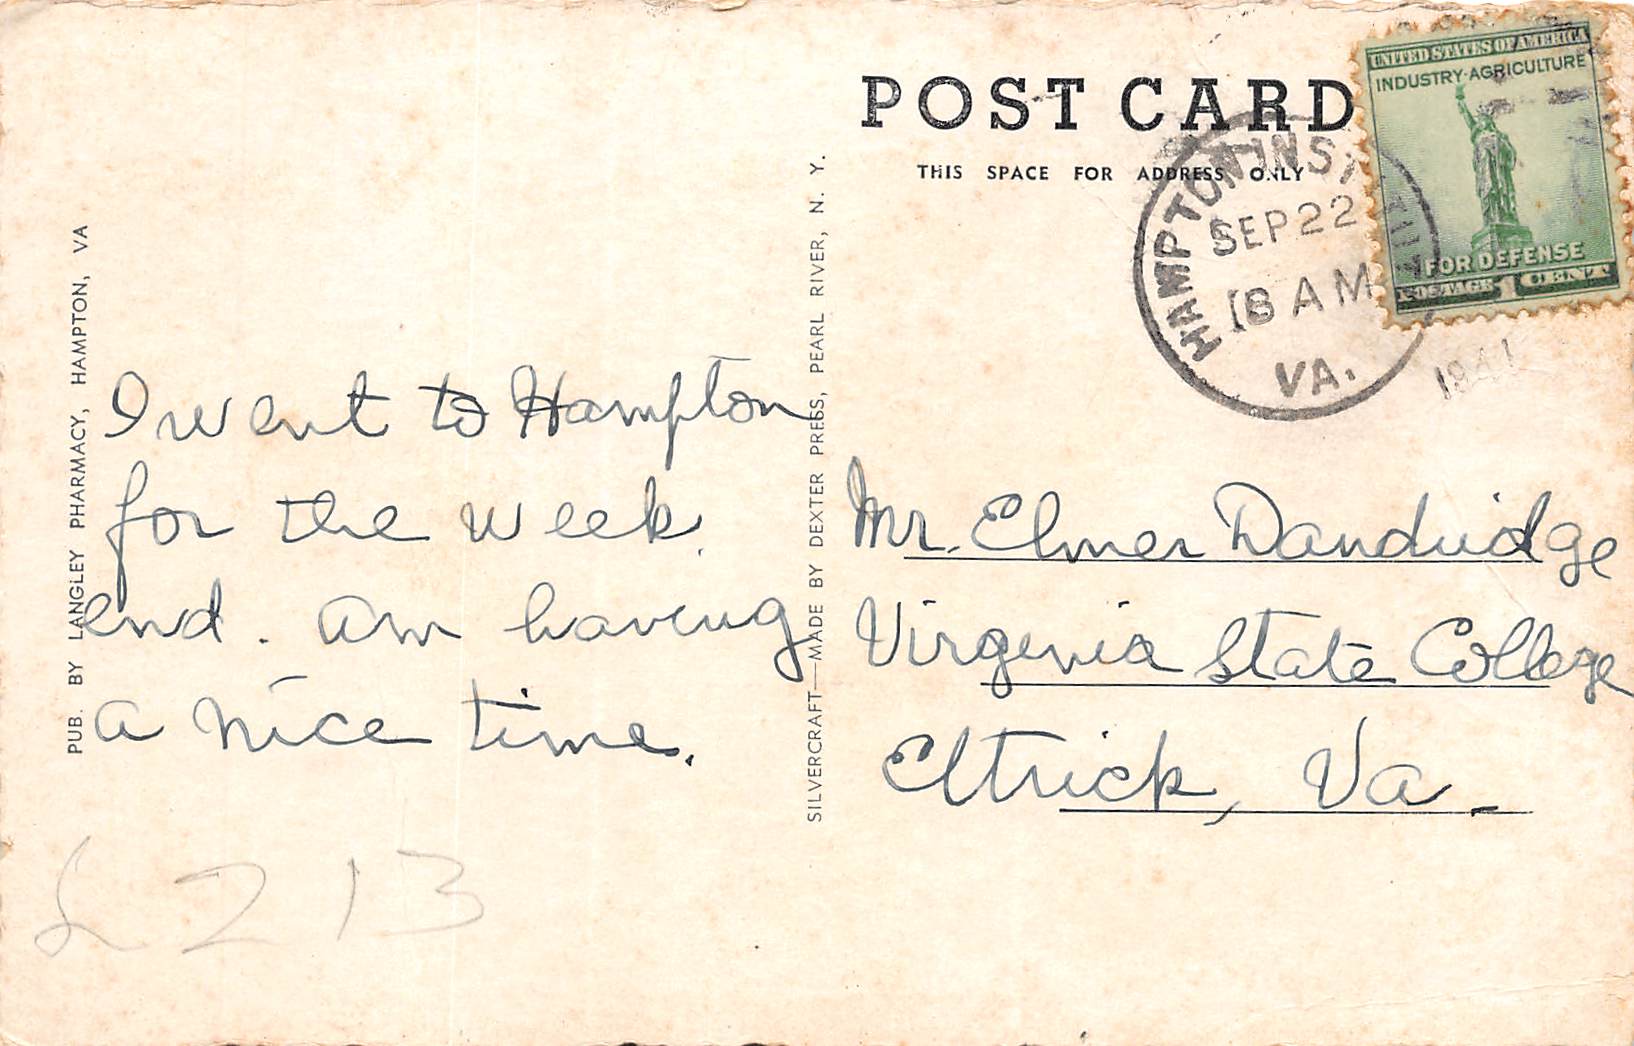 POST CARD
THIS SPACE FOR ADDRESS ONLY
UNITED STATES OF AMERICA
INDUSTRY·AGRICULTURE
FOR DEFENSE
POSTAGE CENT
HAMPTON INST
SEP 22
8 AM
VA.
1941
PUB. BY LANGLEY PHARMACY, HAMPTON, VA
I went to Hampton
for the week
end. Am having
a nice time.
L213
SILVERCRAFT—MADE BY DEXTER PRESS, PEARL RIVER, N. Y.
Mr. Elmer Dandridge
Virginia State College
Ettrick, Va.